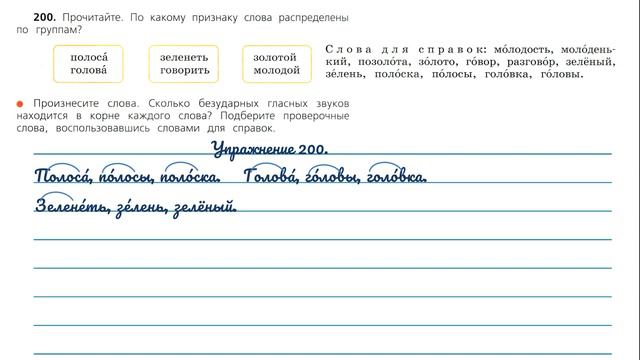 200. Прочитайте. По какому признаку слова распределены
по группам?
полоса́
голова́
зеленеть
говорить
золотой
молодой
Слова для справок: мо́лодость, моло́день-
кий, позоло́та, зо́лото, го́вор, разгово́р, зелёный,
зе́лень, поло́ска, по́лосы, голо́вка, го́ловы.
Произнесите слова. Сколько безударных гласных звуков
находится в корне каждого слова? Подберите проверочные
слова, воспользовавшись словами для справок.
Упражнение 200.
Полоса́, по́лосы, поло́ска. Голова́, го́ловы, голо́вка.
Зелене́ть, зе́лень, зелёный.